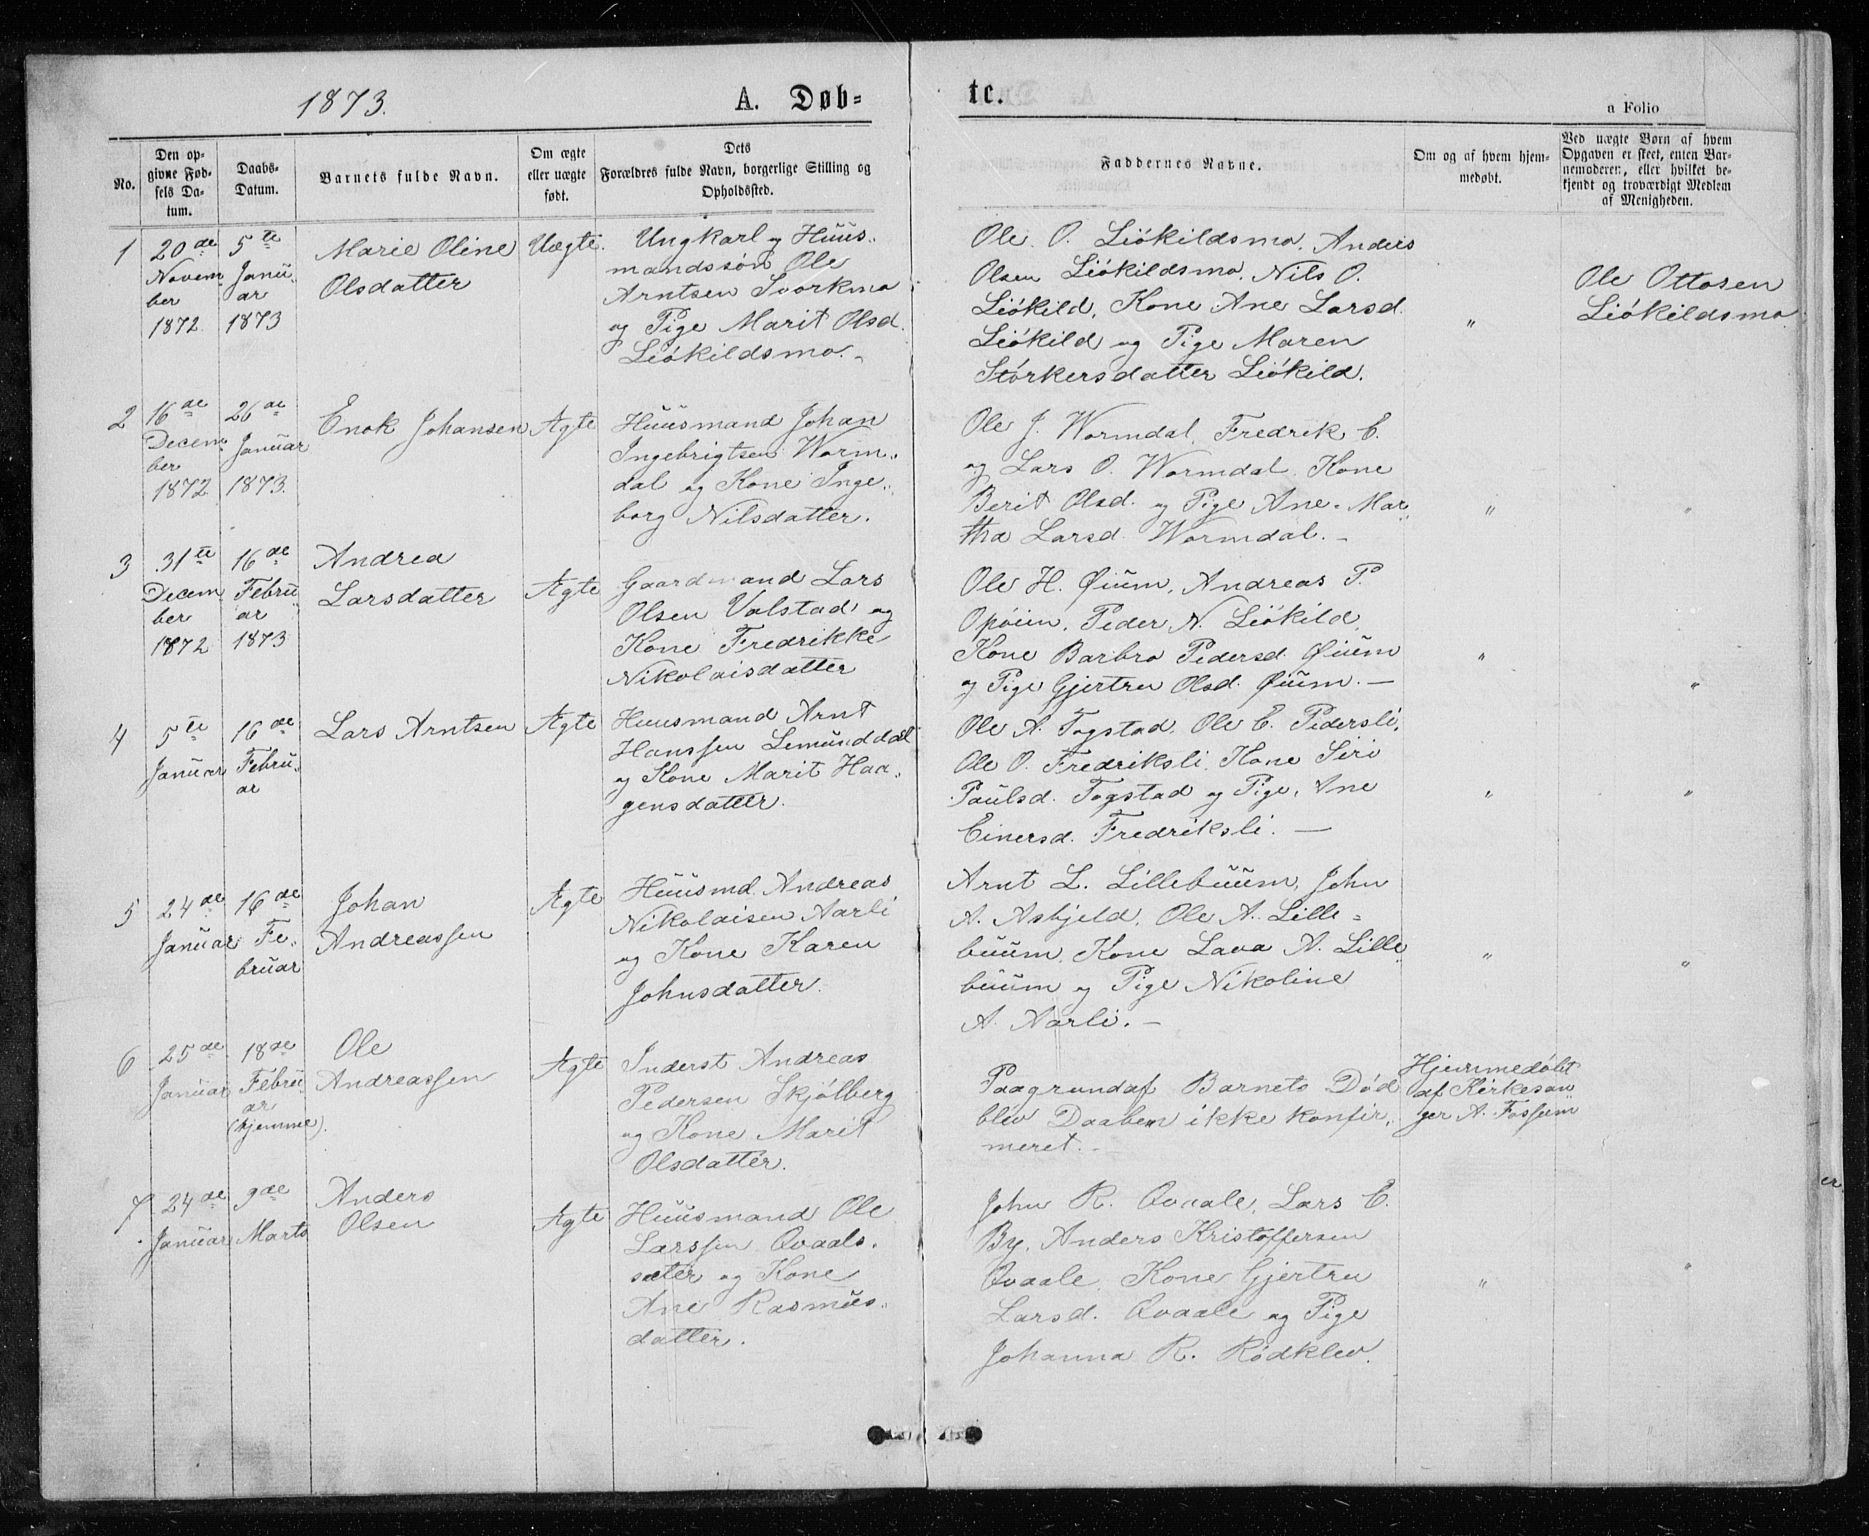 1873.
A. Døb-
te.
a Folio
No.
Den op-
givne Fød-
sels Da-
tum.
Daabs-
Datum.
Barnets fulde Navn.
Om ægte
eller uægte
født.
Dets
Forældres fulde Navn, borgerlige Stilling og
Opholdssted.
Faddernes Navne.
Om og af hvem hjem-
medøbt.
Ved uægte Børn af hvem
Opgaven er skeet, enten Bar-
nemoderen, eller hvilket be-
kjendt og troværdigt Medlem
af Menigheden.
1
20de
Novem
ber
1872
5te
Janu-
ar
1873
Marie Oline
Olsdatter
Uægte.
Ungkarl og Huus-
mandssøn Ole
Arntsen Svorkmo
og Pige Marit Olsd.
Liøkildsmo.-
Ole O. Liøkildsmo, Anders
Olsen Liøkildsmo, Nils O.
Liøkild, Kone Ane Larsd.
Liøkild og Pige Maren
Størkersdatter Liøkild.
"
Ole Ottosen
Liøkildsmo
2
16de
Decem
ber
1872
26de
Januar
1873.
Enok Johansen
Ægte
Huusmand Johan
Ingebrigtsen Worm-
dal og Kone Inge-
borg Nilsdatter.
Ole J. Wormdal, Fredrik E.
og Lars O. Wormdal, Kone
Berit Olsd. og Pige Ane Mar-
tha Larsd. Wormdal.-
"
"
3
31te
Decem
ber
1872
16de
Febru
ar
1873
Andrea
Larsdatter
Ægte
Gaardmand Lars
Olsen Valstad og
Kone Fredrikke
Nikolaisdatter
Ole H. Øium, Andreas P.
Opøien, Peder N. Liøkild,
Kone Barbro Pedersd. Øium
og Pige Gjertru Olsd. Øium.-
"
"
4
5te
Januar
16de
Febru-
ar
Lars Arntsen
Ægte
Huusmand Arnt
Hanssen Lemunddal
og Kone Marit Haa-
gensdatter.
Ole A. Togstad, Ole E. Pedersli,
Ole O. Fredriksli, Kone Siri
Paulsd. Togstad og Pige, Ane
Einersd. Fredriksli.-
"
"
5
24de
Januar
16de
Fe-
bruar
Johan
Andreassen
Ægte
Huusmd. Andreas
Nikolaisen Aarli
og Kone Karen
Johnsdatter.
Arnt L. Lillebuum, John
A. Asbjeld, Ole A. Lille-
buum, Kone Lava A. Lille
buum og Pige Nikoline
A. Aarli.-
"
"
6
25de
Januar
18de
Febru-
ar
(hjemme).
Ole
Andreassen
Ægte
Inderst Andreas
Pedersen Skjølberg
og Kone Marit
Olsdatter.
Paagrundaf Barnets Død
blev Daaben ikke konfir-
meret.-
Hjemmedøbt
af Kirkesan
ger A. Fossum
7
24de
Januar
9de
Marts
Anders
Olsen
Ægte
Huusmand Ole
Larssen Qvaals-
sæter og Kone
Ane Rasmus-
datter.
John R. Qvaale, Lars E.
By, Anders Kristoffersen
Qvaale, Kone Gjertru
Larsd. Qvaale og Pige
Johanna R. Rødklev.
"
"